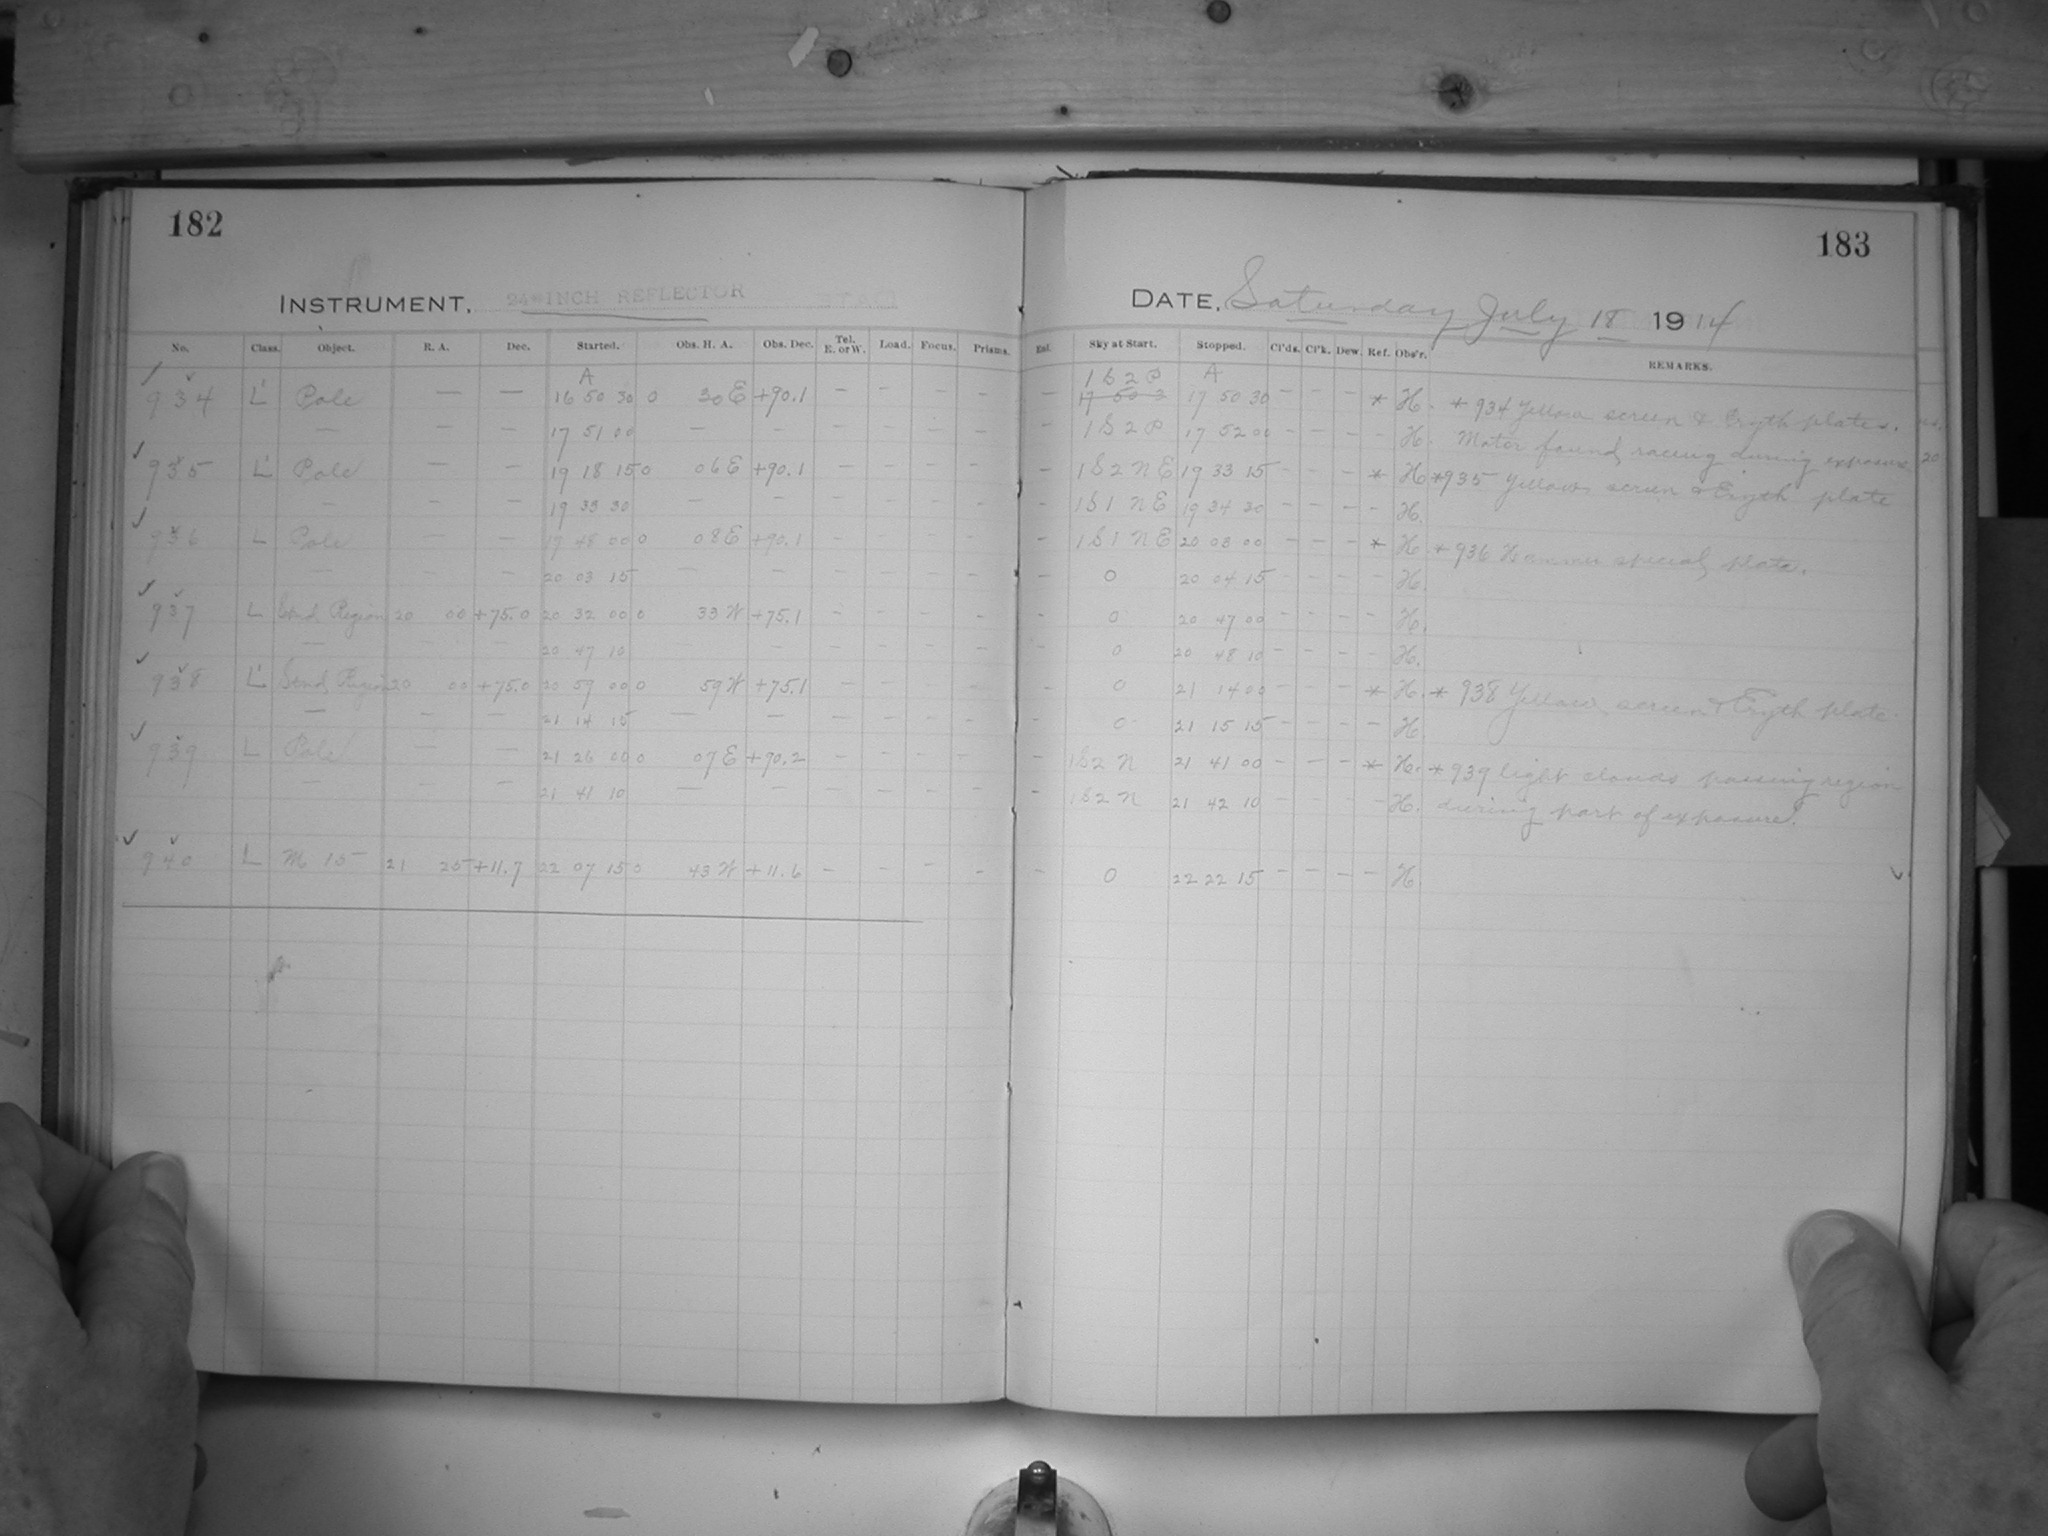 182
183
INSTRUMENT, 24-INCH REFLECTOR
DATE, Saturday July 18 1914
No. Class. Object. R. A. Dec. Started. Obs. H. A. Obs. Dec. Tel. E. or W. Load. Focus. Prisms. Enl. Sky at Start. Stopped. Cl'ds. Cl'k. Dew. Ref. Obs'r. REMARKS.
A 1 S 2 P A
934 L' Pole — — 16 50 30 0 30 E +90.1 — — — — — 17 50 3 17 50 30 — — — * H. * 934 Yellow screen & Eryth plates.
— — — 17 51 00 — — — — — — — 1 S 2 P 17 52 00 — — — — H. Motor found racing during exposure 20
935 L' Pole — — 19 18 15 0 06 E +90.1 — — — — — 1 S 2 N E 19 33 15 — — — * H. *935 Yellow screen & Eryth plate
— — — 19 33 30 — — — — — — — 1 S 1 N E 19 34 30 — — — — H.
936 L Pole — — 19 48 00 0 08 E +90.1 — — — — — 1 S 1 N E 20 03 00 — — — * H. * 936 Hammer special plate.
— — — 20 03 15 — — — — — — — 0 20 04 15 — — — — H.
937 L Stnd Region 20 00 +75.0 20 32 00 0 33 W +75.1 — — — — — 0 20 47 00 — — — — H.
— — — 20 47 10 — — — — — — — 0 20 48 10 — — — — H.
938 L' Stnd Region 20 00 +75.0 20 59 00 0 59 W +75.1 — — — — — 0 21 14 00 — — — * H. * 938 Yellow screen & Eryth plate
— — — 21 14 15 — — — — — — — 0 21 15 15 — — — — H.
939 L Pole — — 21 26 00 0 07 E +90.2 — — — — — 1 S 2 N 21 41 00 — — — * H. * 939 light clouds passing region
— — — 21 41 10 — — — — — — — 1 S 2 N 21 42 10 — — — — H. during part of exposure.
940 L M 15 21 25 +11.7 22 07 15 0 43 W +11.6 — — — — — 0 22 22 15 — — — — H.